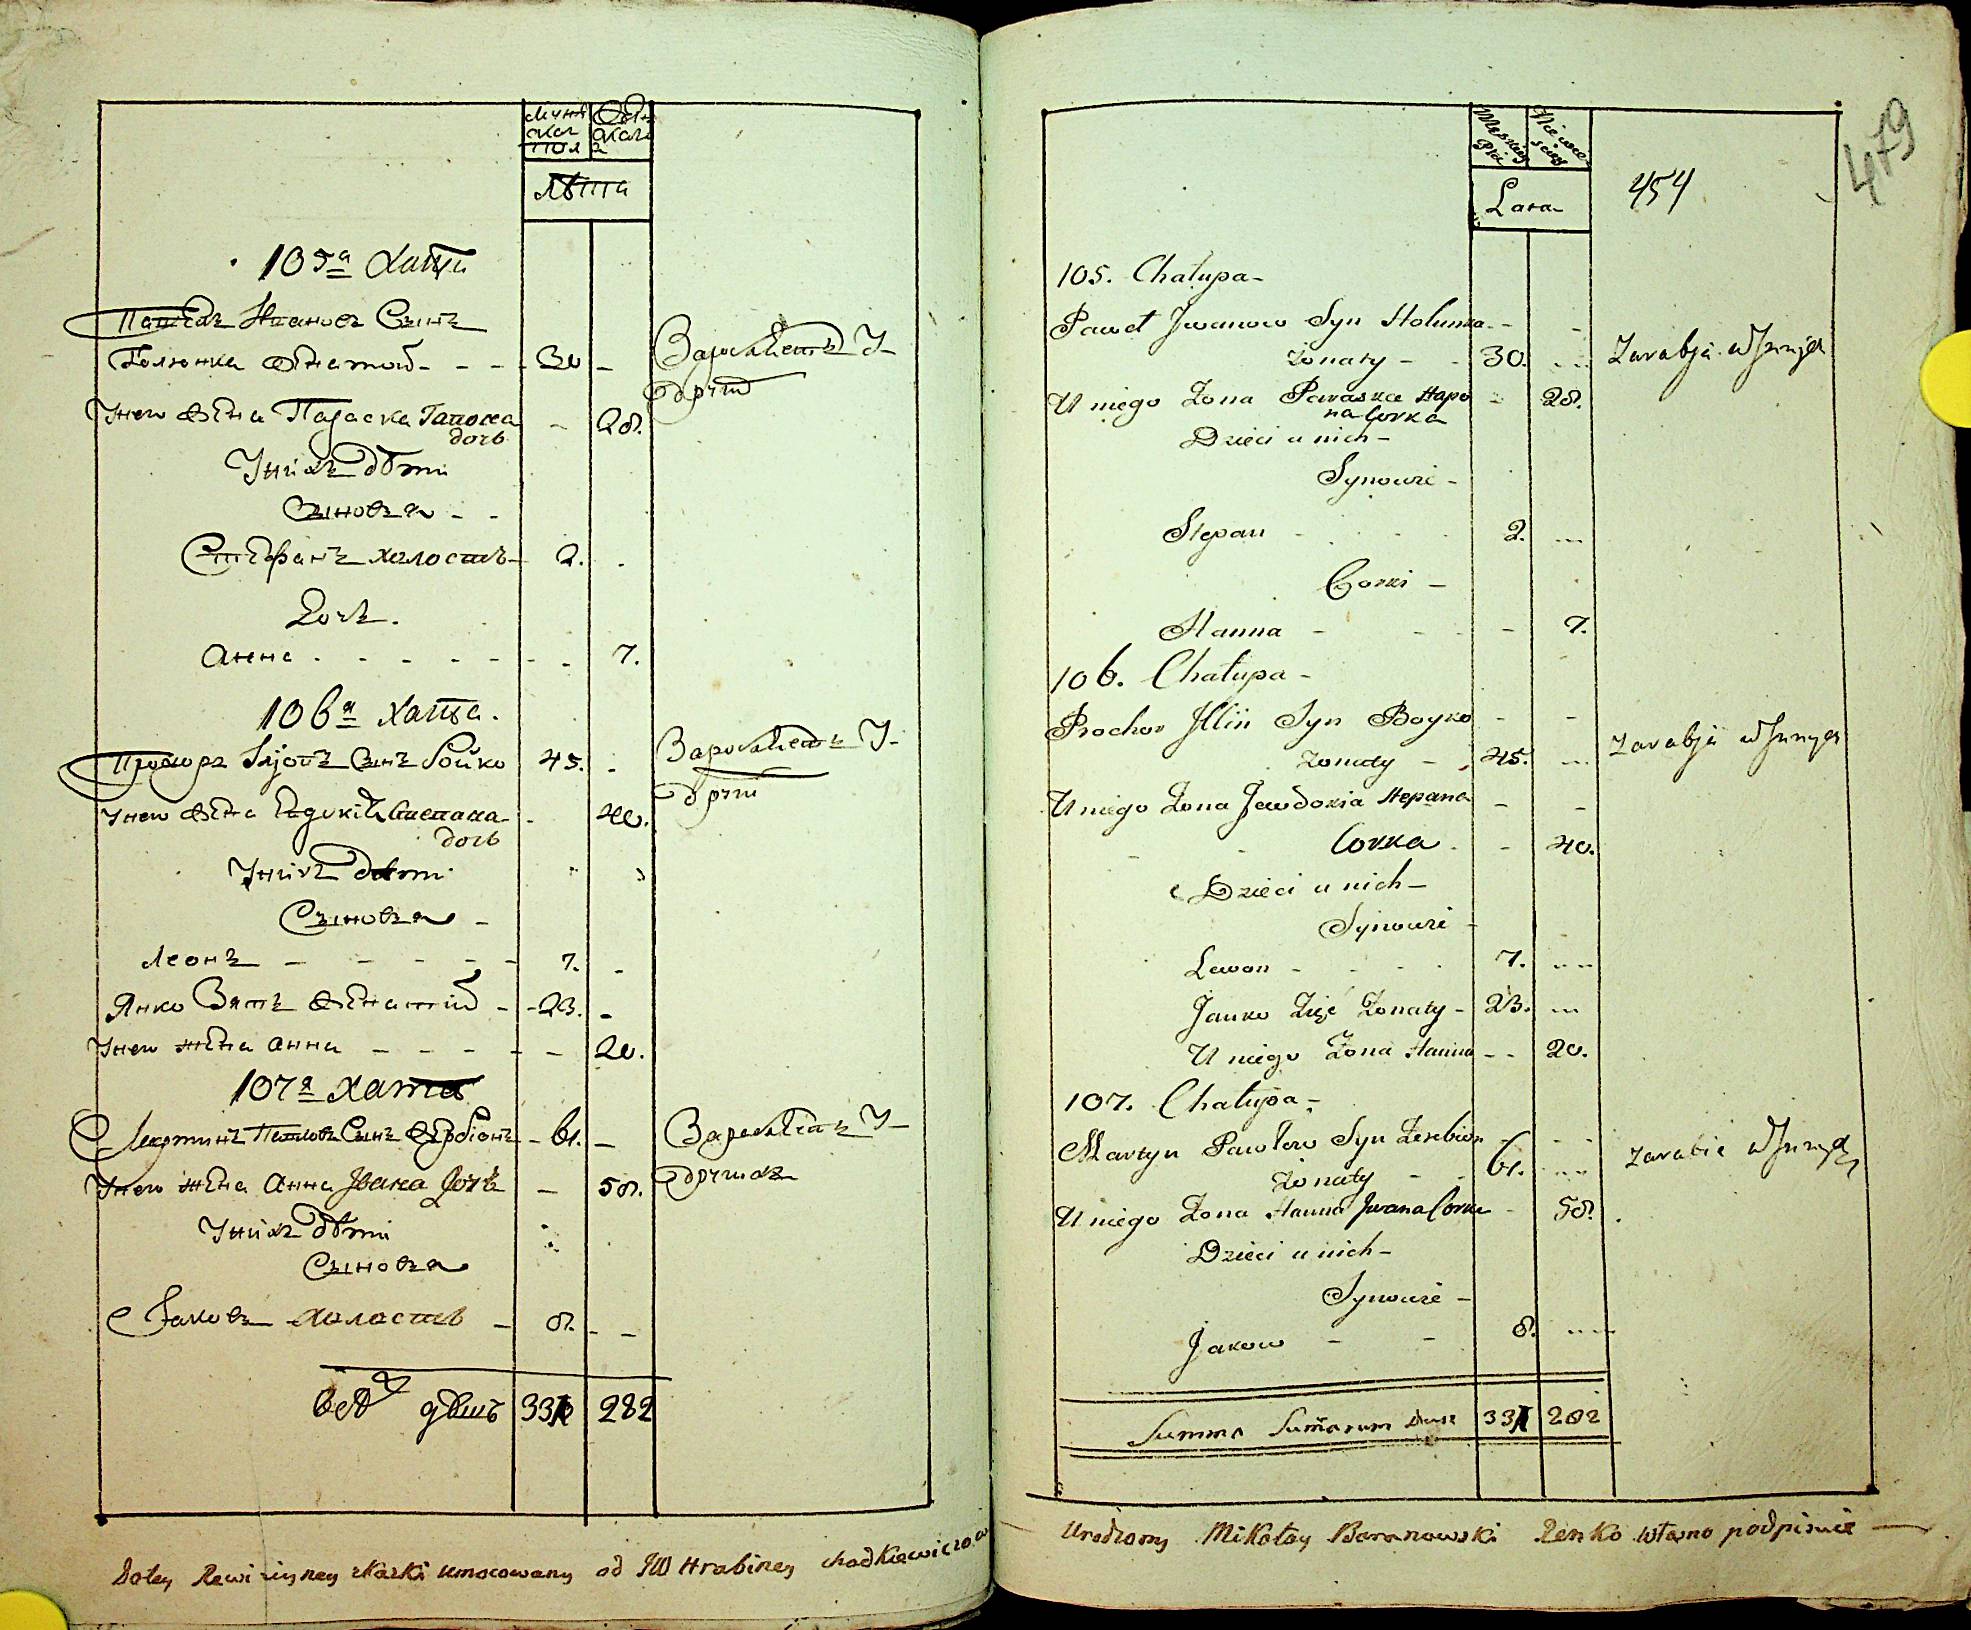 мужс
кая
пол
лѣта
105а хата
Павелъ Ивановъ Сынъ
Голюнка женатой - - - 30 -
У него жена Параска Гапона - 28.
дочь
У нихъ дѣти
Сыновья - -
Стефанъ холостъ - 2. -
Дочь.
Анна - - - - - - 7.
106я хата.
Прохоръ Сынъ Бойко 45. -
У него жена Степана - 40.
дочь
У нихъ дѣти
Сыновья -
Леонъ - - - - - 7. -
Янко Зять женатый - - 23. -
У него жена Анна - - - - - 20.
107я хата
Мартинъ Павловъ Сынъ - 61. -
У него жена Анна Ивана дочь - 58.
У нихъ дѣти
Сыновья
Яковъ холостъ - 8. - -
душъ 33 282
Dotey Rewizyiney skaski umocowany od JW Hrabiney Chodkiewiczowey
479
Męskiey
Płci
Niewie-
sciey
Lata
454
105. Chałupa -
Paweł Jwanow Syn Holunka - - -
Żonaty - - 30. ... Zarabja
U niego Żona Paraska Hapo - 28.
na Corka
Dzieci u nich -
Synowie -
Stepan - . . . 2. ...
Corki -
Hanna - - - - 7.
106. Chałupa -
Prochor Illin Syn Boyko - -
Żonaty - 45. ... Zarabja
U niego Żona Jewdokia Stepana - -
Corka . - 40.
Dzieci u nich -
Synowie -
Lewon - - - . 7. ...
Janko Zięć Żonaty - 23. ...
U niego Żona Hanna - - 20.
107. Chałupa -
Martyn Pawłow Syn Zerebion - - -
Żonaty - - 61. ... Zarabia
U niego Żona Hanna Jwana Corka - 58.
Dzieci u nich -
Synowie -
Jakow - - 8. ...
Summa Summarum Dusz 33 282
Urodzony Mikołay Baranowski Renko własno podpisuie —